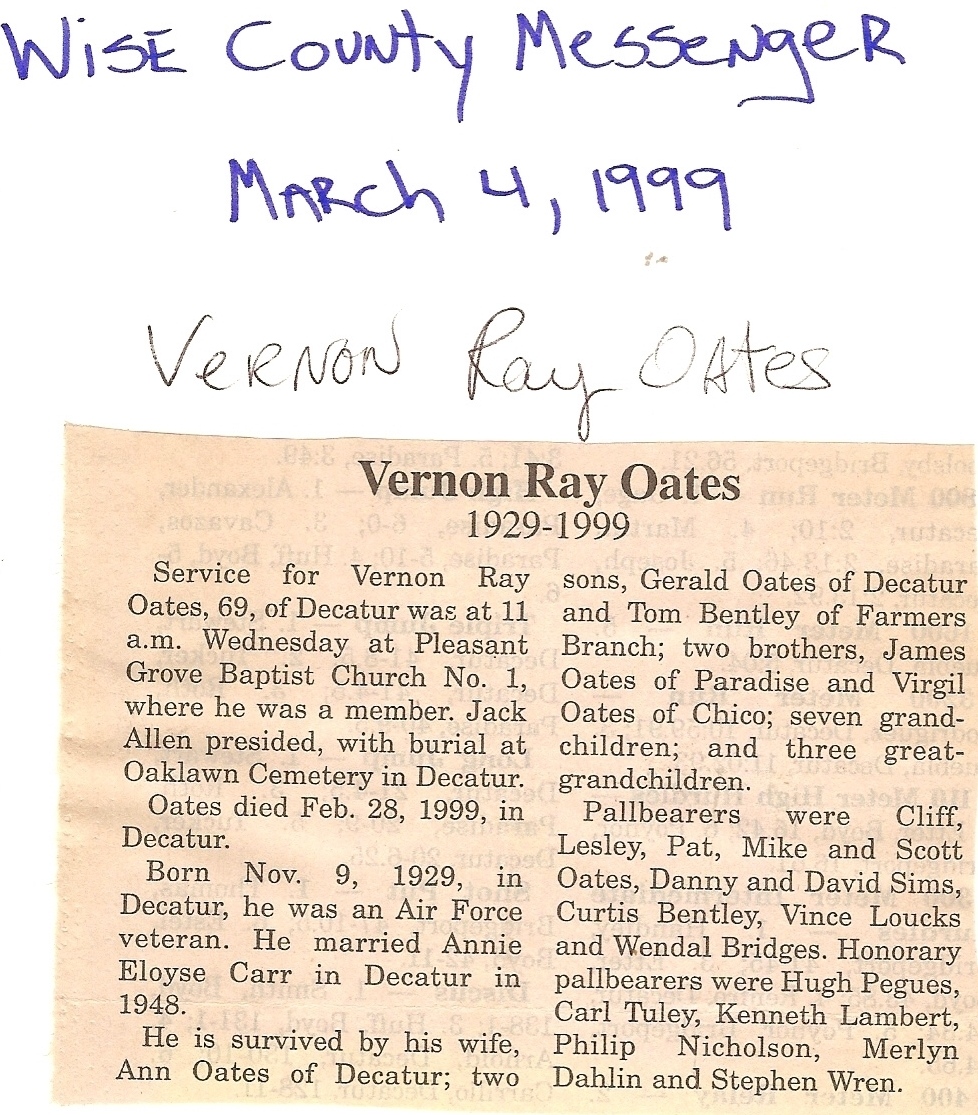 Wise County Messenger
March 4, 1999
Vernon Ray Oates
Vernon Ray Oates
1929-1999
Service for Vernon Ray
Oates, 69, of Decatur was at 11
a.m. Wednesday at Pleasant
Grove Baptist Church No. 1,
where he was a member. Jack
Allen presided, with burial at
Oaklawn Cemetery in Decatur.
Oates died Feb. 28, 1999, in
Decatur.
Born Nov. 9, 1929, in
Decatur, he was an Air Force
veteran. He married Annie
Eloyse Carr in Decatur in
1948.
He is survived by his wife,
Ann Oates of Decatur; two
sons, Gerald Oates of Decatur
and Tom Bentley of Farmers
Branch; two brothers, James
Oates of Paradise and Virgil
Oates of Chico; seven grand-
children; and three great-
grandchildren.
Pallbearers were Cliff,
Lesley, Pat, Mike and Scott
Oates, Danny and David Sims,
Curtis Bentley, Vince Loucks
and Wendal Bridges. Honorary
pallbearers were Hugh Pegues,
Carl Tuley, Kenneth Lambert,
Philip Nicholson, Merlyn
Dahlin and Stephen Wren.